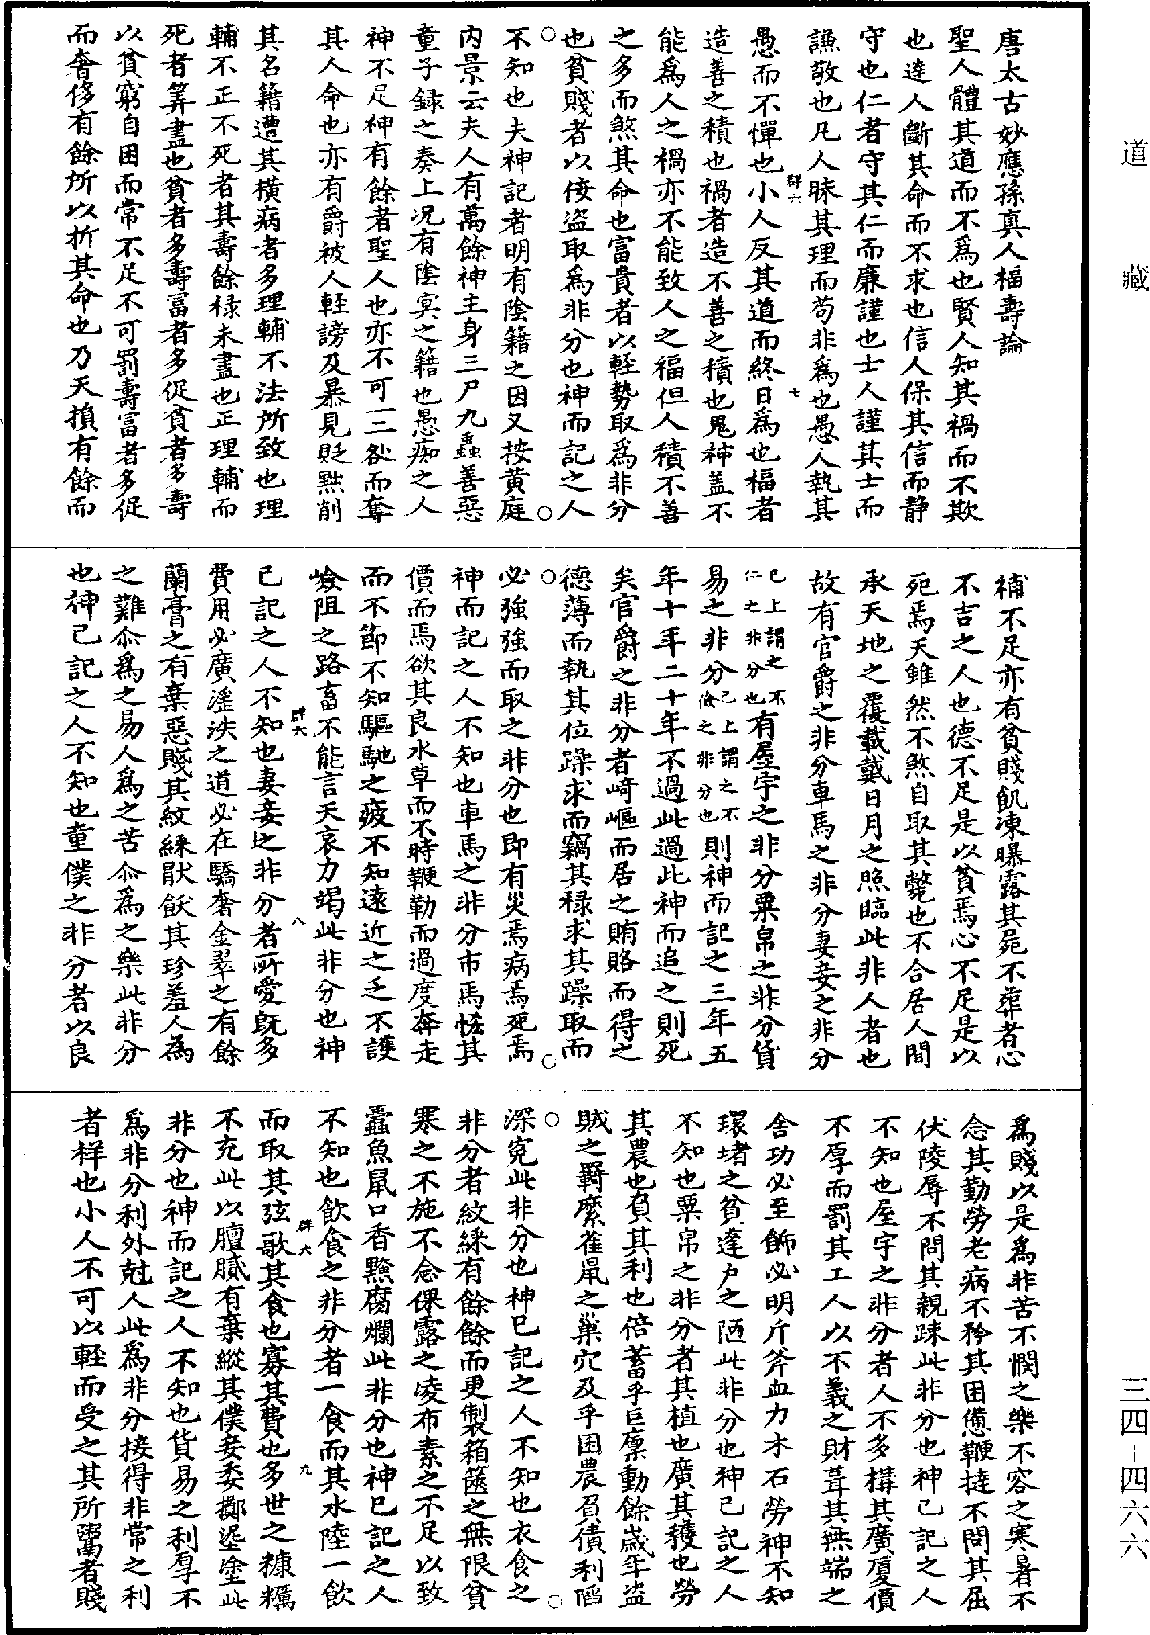 道藏
三四—四六六
唐太古妙應孫真人福壽論
聖人體其道而不爲也賢人知其禍而不欺
也達人斷其命而不求也信人保其信而静
守也仁者守其仁而廉謹也士人謹其士而
謙敬也凡人昧其理而苟非爲也愚人執其
愚而不憚也小人反其道而終日爲也福者
造善之積也禍者造不善之積也鬼神蓋不
能爲人之禍亦不能致人之福但人積不善
之多而煞其命也富貴者以輕勢取爲非分
也貧賤者以佞盗取爲非分也神而記之人
不知也夫神記者明有陰籍之因又按黄庭
内景云夫人有萬餘神主身三尸九蟲善惡
童子録之奏上况有陰冥之籍也愚痴之人
神不足神有餘者聖人也亦不可一二欲而奪
其人命也亦有爵被人輕謗及暴見貶黜削
其名籍遭其横病者多理輔不法所致也理
輔不正不死者其壽餘禄未盡也正理輔而
死者筭盡也貧者多壽富者多促貧者多壽
以貧窮自困而常不足不可罰壽富者多促
而奢侈有餘所以折其命也乃天損有餘而
補不足亦有貧賤飢凍曝露其屍不葬者心
不吉之人也德不足是以貧焉心不足是以
死焉天雖然不煞自取其斃也不合居人間
承天地之覆載戴日月之照臨此非人者也
故有官爵之非分車馬之非分妻妾之非分
已上謂之不仁之非分也有屋宇之非分粟帛之非分貨
易之非分已上謂之不儉之非分也則神而記之三年五
年十年二十年不過此過此神而追之則死
矣官爵之非分者崎嶇而居之賄賂而得之
德薄而執其位躁求而竊其禄求其躁取而
必強強而取之非分也即有災焉病焉死焉
神而記之人不知也車馬之非分市馬恡其
價而焉欲其良水草而不時鞭勒而過度奔走
而不節不知驅馳之疲不知遠近之乏不護
嶮阻之路畜不能言天哀力竭此非分也神
已記之人不知也妻妾之非分者所愛既多
費用必廣淫泆之道必在驕奢金翠之有餘
蘭膏之有棄惡賤其紋綵猒飫其珍羞人爲
之難尒爲之易人爲之苦尒爲之樂此非分
也神已記之人不知也童僕之非分者以良
爲賤以是爲非苦不憫之樂不容之寒暑不
念其勤勞老病不矜其困憊鞭撻不問其屈
伏陵辱不問其親踈此非分也神已記之人
不知也屋宇之非分者人不多構其廣厦價
不厚而罰其工人以不義之財葺其無端之
舍功必至飾必明斤斧血力木石勞神不知
環堵之貧達户之陋此非分也神已記之人
不知也粟帛之非分者其植也廣其穫也勞
其農也負其利也倍蓄乎巨廩動餘歲年盗
賊之羇縻雀鼠之巢穴及乎困農負債利陷
深寃此非分也神已記之人不知也衣食之
非分者紋綵有餘餘而更製箱篋之無限貧
寒之不施不念倮露之凌布素之不足以致
蠹魚鼠口香黦腐爛此非分也神已記之人
不知也飲食之非分者一食而其水陸一飲
而取其弦歌其食也寡其費也多世之糠糲
不充此以膻膩有棄縱其僕妾委擲埿塗此
非分也神而記之人不知也貨易之利厚不
爲非分利外尅人此爲非分接得非常之利
者祥也小人不可以輕而受之其所鬻者賤
群六
七
群六
八
群六
九